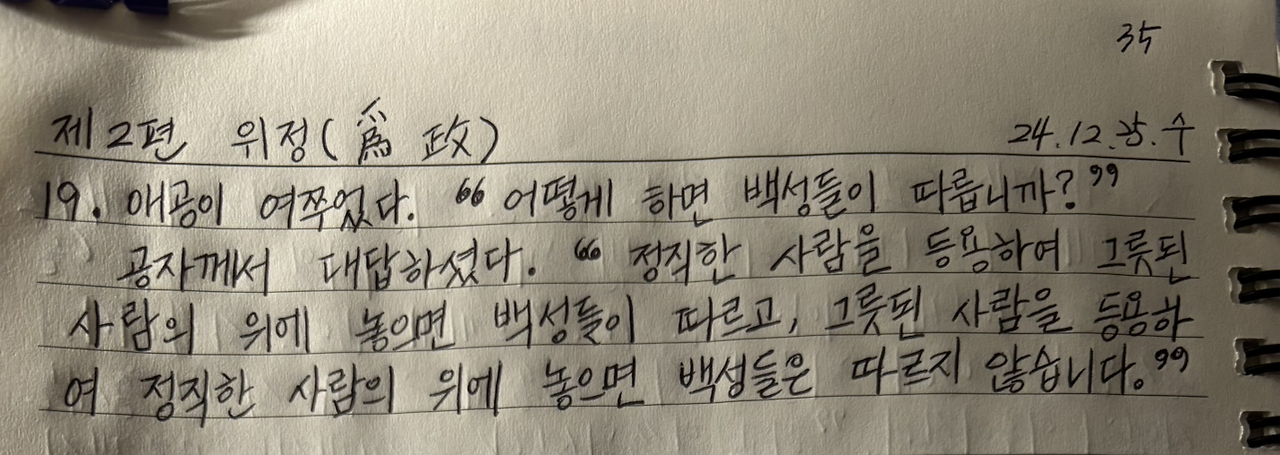 35
제2편 위정(爲政) 24.12.25.수
19. 애공이 여쭈었다. “어떻게 하면 백성들이 따릅니까?”
공자께서 대답하셨다. “정직한 사람을 등용하여 그릇된
사람의 위에 놓으면 백성들이 따르고, 그릇된 사람을 등용하
여 정직한 사람의 위에 놓으면 백성들은 따르지 않습니다.”